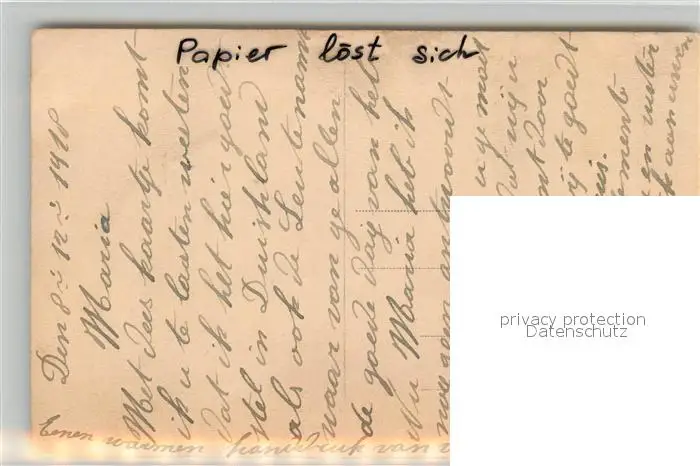 Papier löst sich
Den 8 - 12 - 1918
Maria
Met dees kaartje komt
ik u te laaten weeten
dat ik het hier goed
stel in Duitsland
als ook de Leutenant
waar van ge allen
de goede dag van het
Nu Maria heb ik
nog geen antwoord
u gemoet
dat wij u
te goedt
en water
Eenen warmen handdruk van
privacy protection
Datenschutz